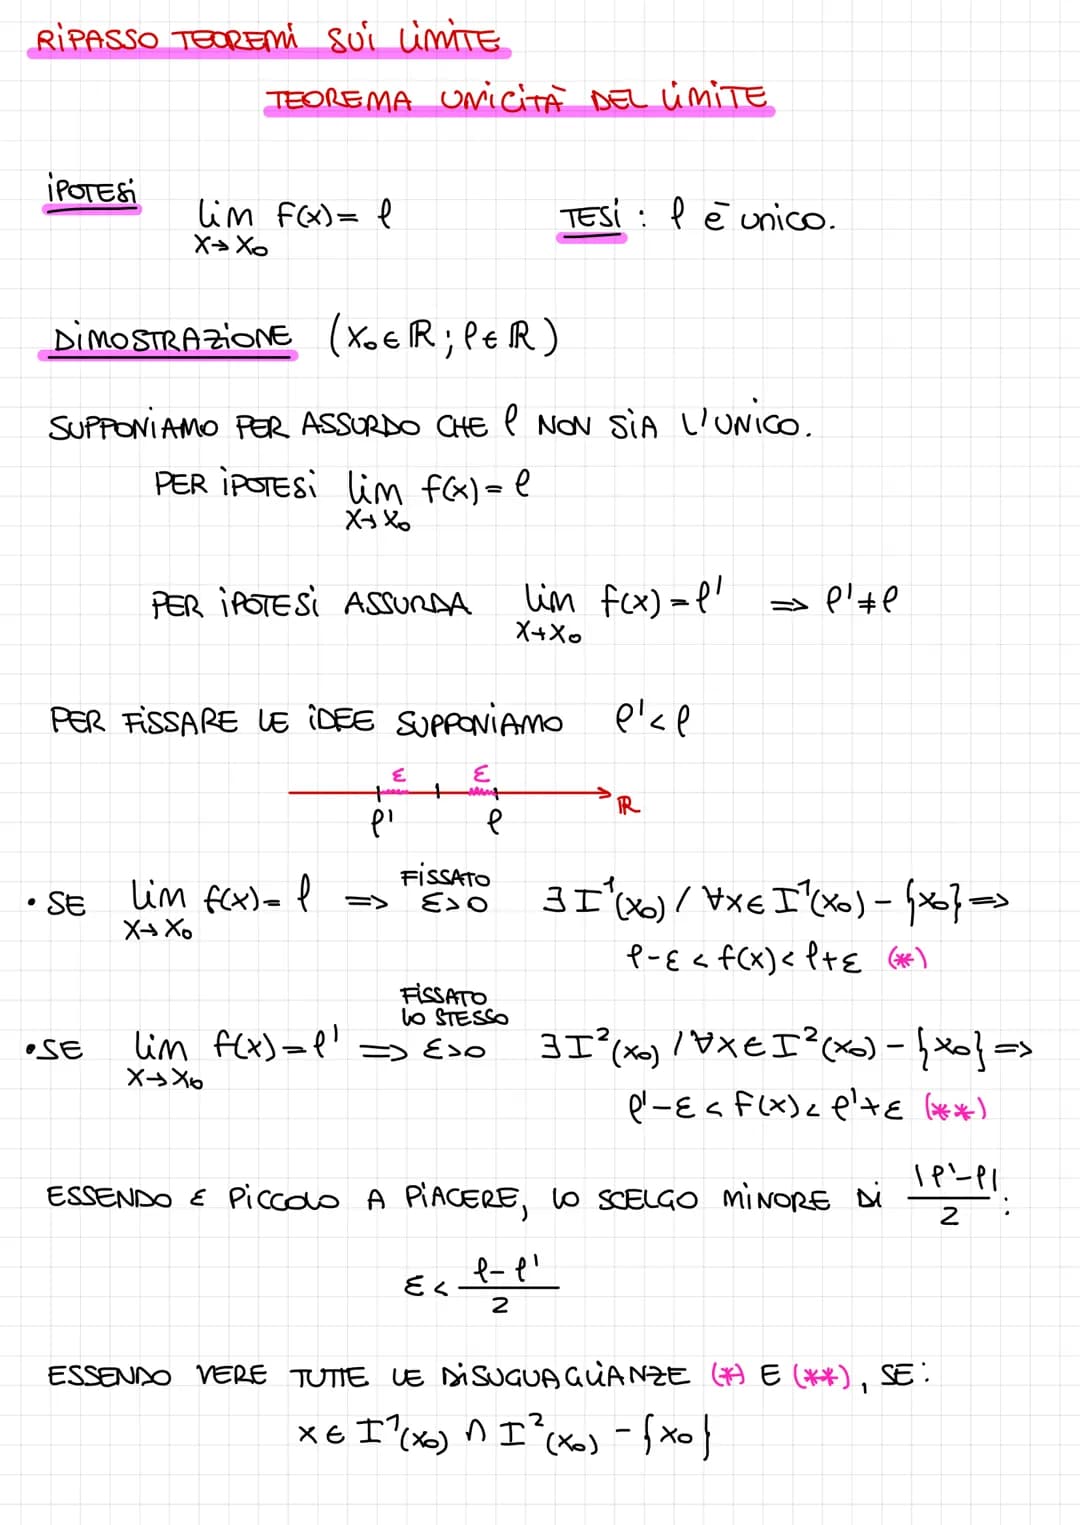 RIPASSO TEOREMI SUI LIMITE
TEOREMA UNICITÀ DEL LIMITE
IPOTESI
lim f(x) = l
x→x₀
TESI : l è unico.
DIMOSTRAZIONE (x₀∈ℝ; l∈ℝ)
SUPPONIAMO PER ASSURDO CHE l NON SIA L'UNICO.
PER IPOTESI lim f(x) = l
x→x₀
PER IPOTESI ASSURDA lim f(x) = l' ⇒ l'≠l
x→x₀
PER FISSARE LE IDEE SUPPONIAMO l'<l
ε ε
ℝ
l' l
• SE lim f(x) = l ⇒ FISSATO ε>0 ∃ I¹(x₀) / ∀x∈ I¹(x₀) - {x₀} ⇒
x→x₀
l-ε < f(x) < l+ε (*)
• SE lim f(x) = l' ⇒ FISSATO LO STESSO ε>0 ∃ I²(x₀) / ∀x∈ I²(x₀) - {x₀} ⇒
x→x₀
l'-ε < f(x) < l'+ε (**)
ESSENDO ε PICCOLO A PIACERE, LO SCELGO MINORE DI |l'-l|/2 :
ε < (l-l')/2
ESSENDO VERE TUTTE LE DISUGUAGLIANZE (*) E (**), SE :
x∈ I¹(x₀) ∩ I²(x₀) - {x₀}